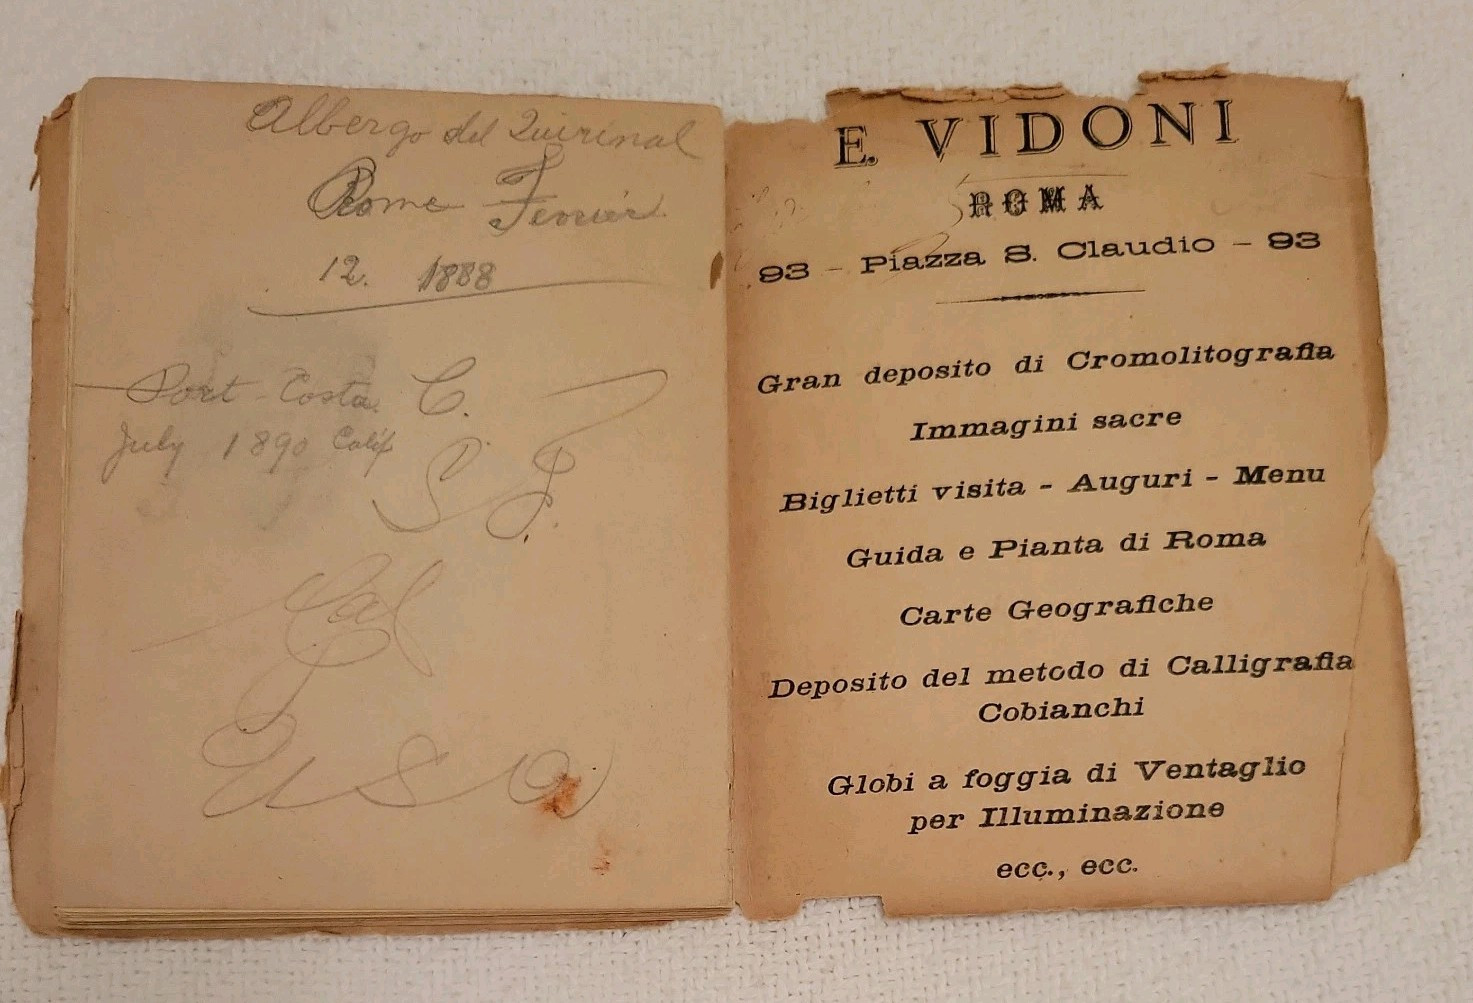 Albergo del Quirinal
Rome Fevrier
12. 1888
Port Costa C.
July 1890 Calif
S F.
Cal
USA
E. VIDONI
ROMA
93 – Piazza S. Claudio – 93
Gran deposito di Cromolitografia
Immagini sacre
Biglietti visita - Auguri - Menu
Guida e Pianta di Roma
Carte Geografiche
Deposito del metodo di Calligrafia
Cobianchi
Globi a foggia di Ventaglio
per Illuminazione
ecc., ecc.